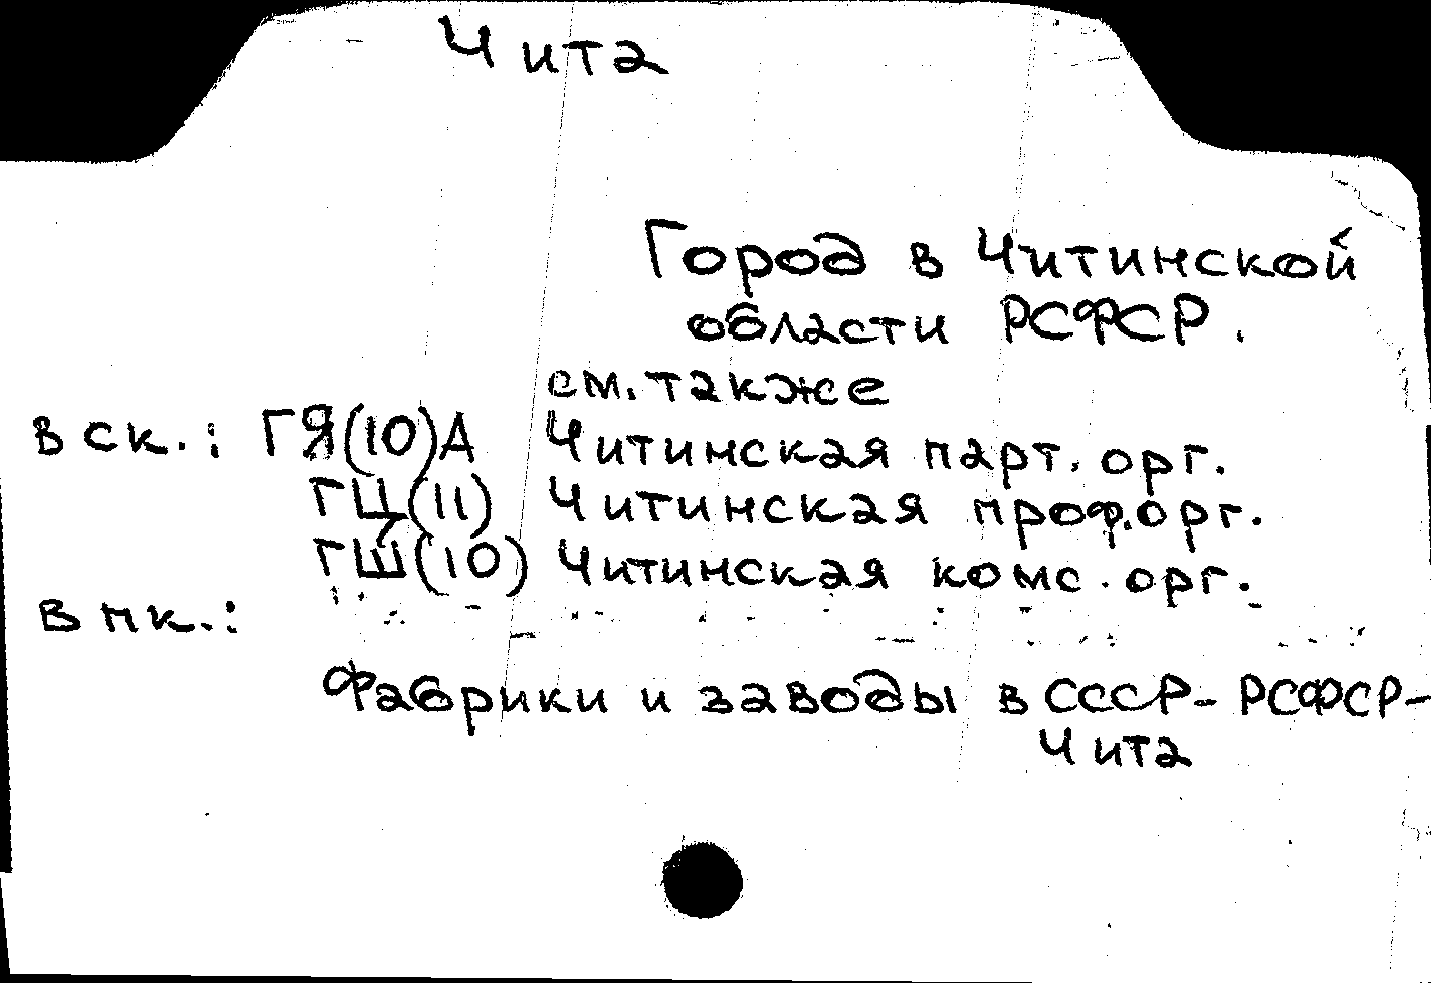 Чита
Город в Читинской
области РСФСР.
см. также
в ск.: ГЯ(10)А Читинская парт. орг.
ГЦ(11) Читинская проф. орг.
ГШ(10) Читинская комс. орг.
в пк.:
Фабрики и заводы в СССР - РСФСР -
Чита